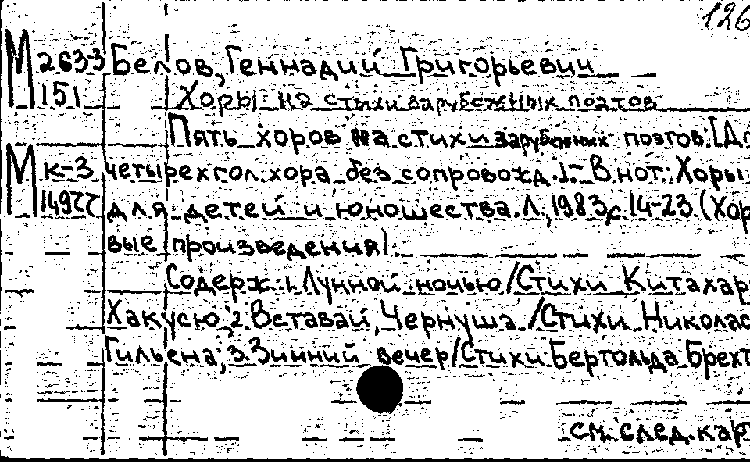 126
М 2633 Белов, Геннадий Григорьевич
151 Хоры на стихи зарубежных поэтов
Пять хоров на стихи зарубежных поэтов: [Дл
М к-3 четырехгол. хора без сопровожд.].- В нот.: Хоры
для детей и юношества. Л., 1983, с. 14-23. (Хор
вые произведения).
Содерж.: 1. Лунной ночью/Стихи Китахар
Хакусю; 2. Вставай, Чернуша /Стихи Николас
Гильена; 3. Зимний вечер/Стихи Бертольда Брехт
см. след. кар